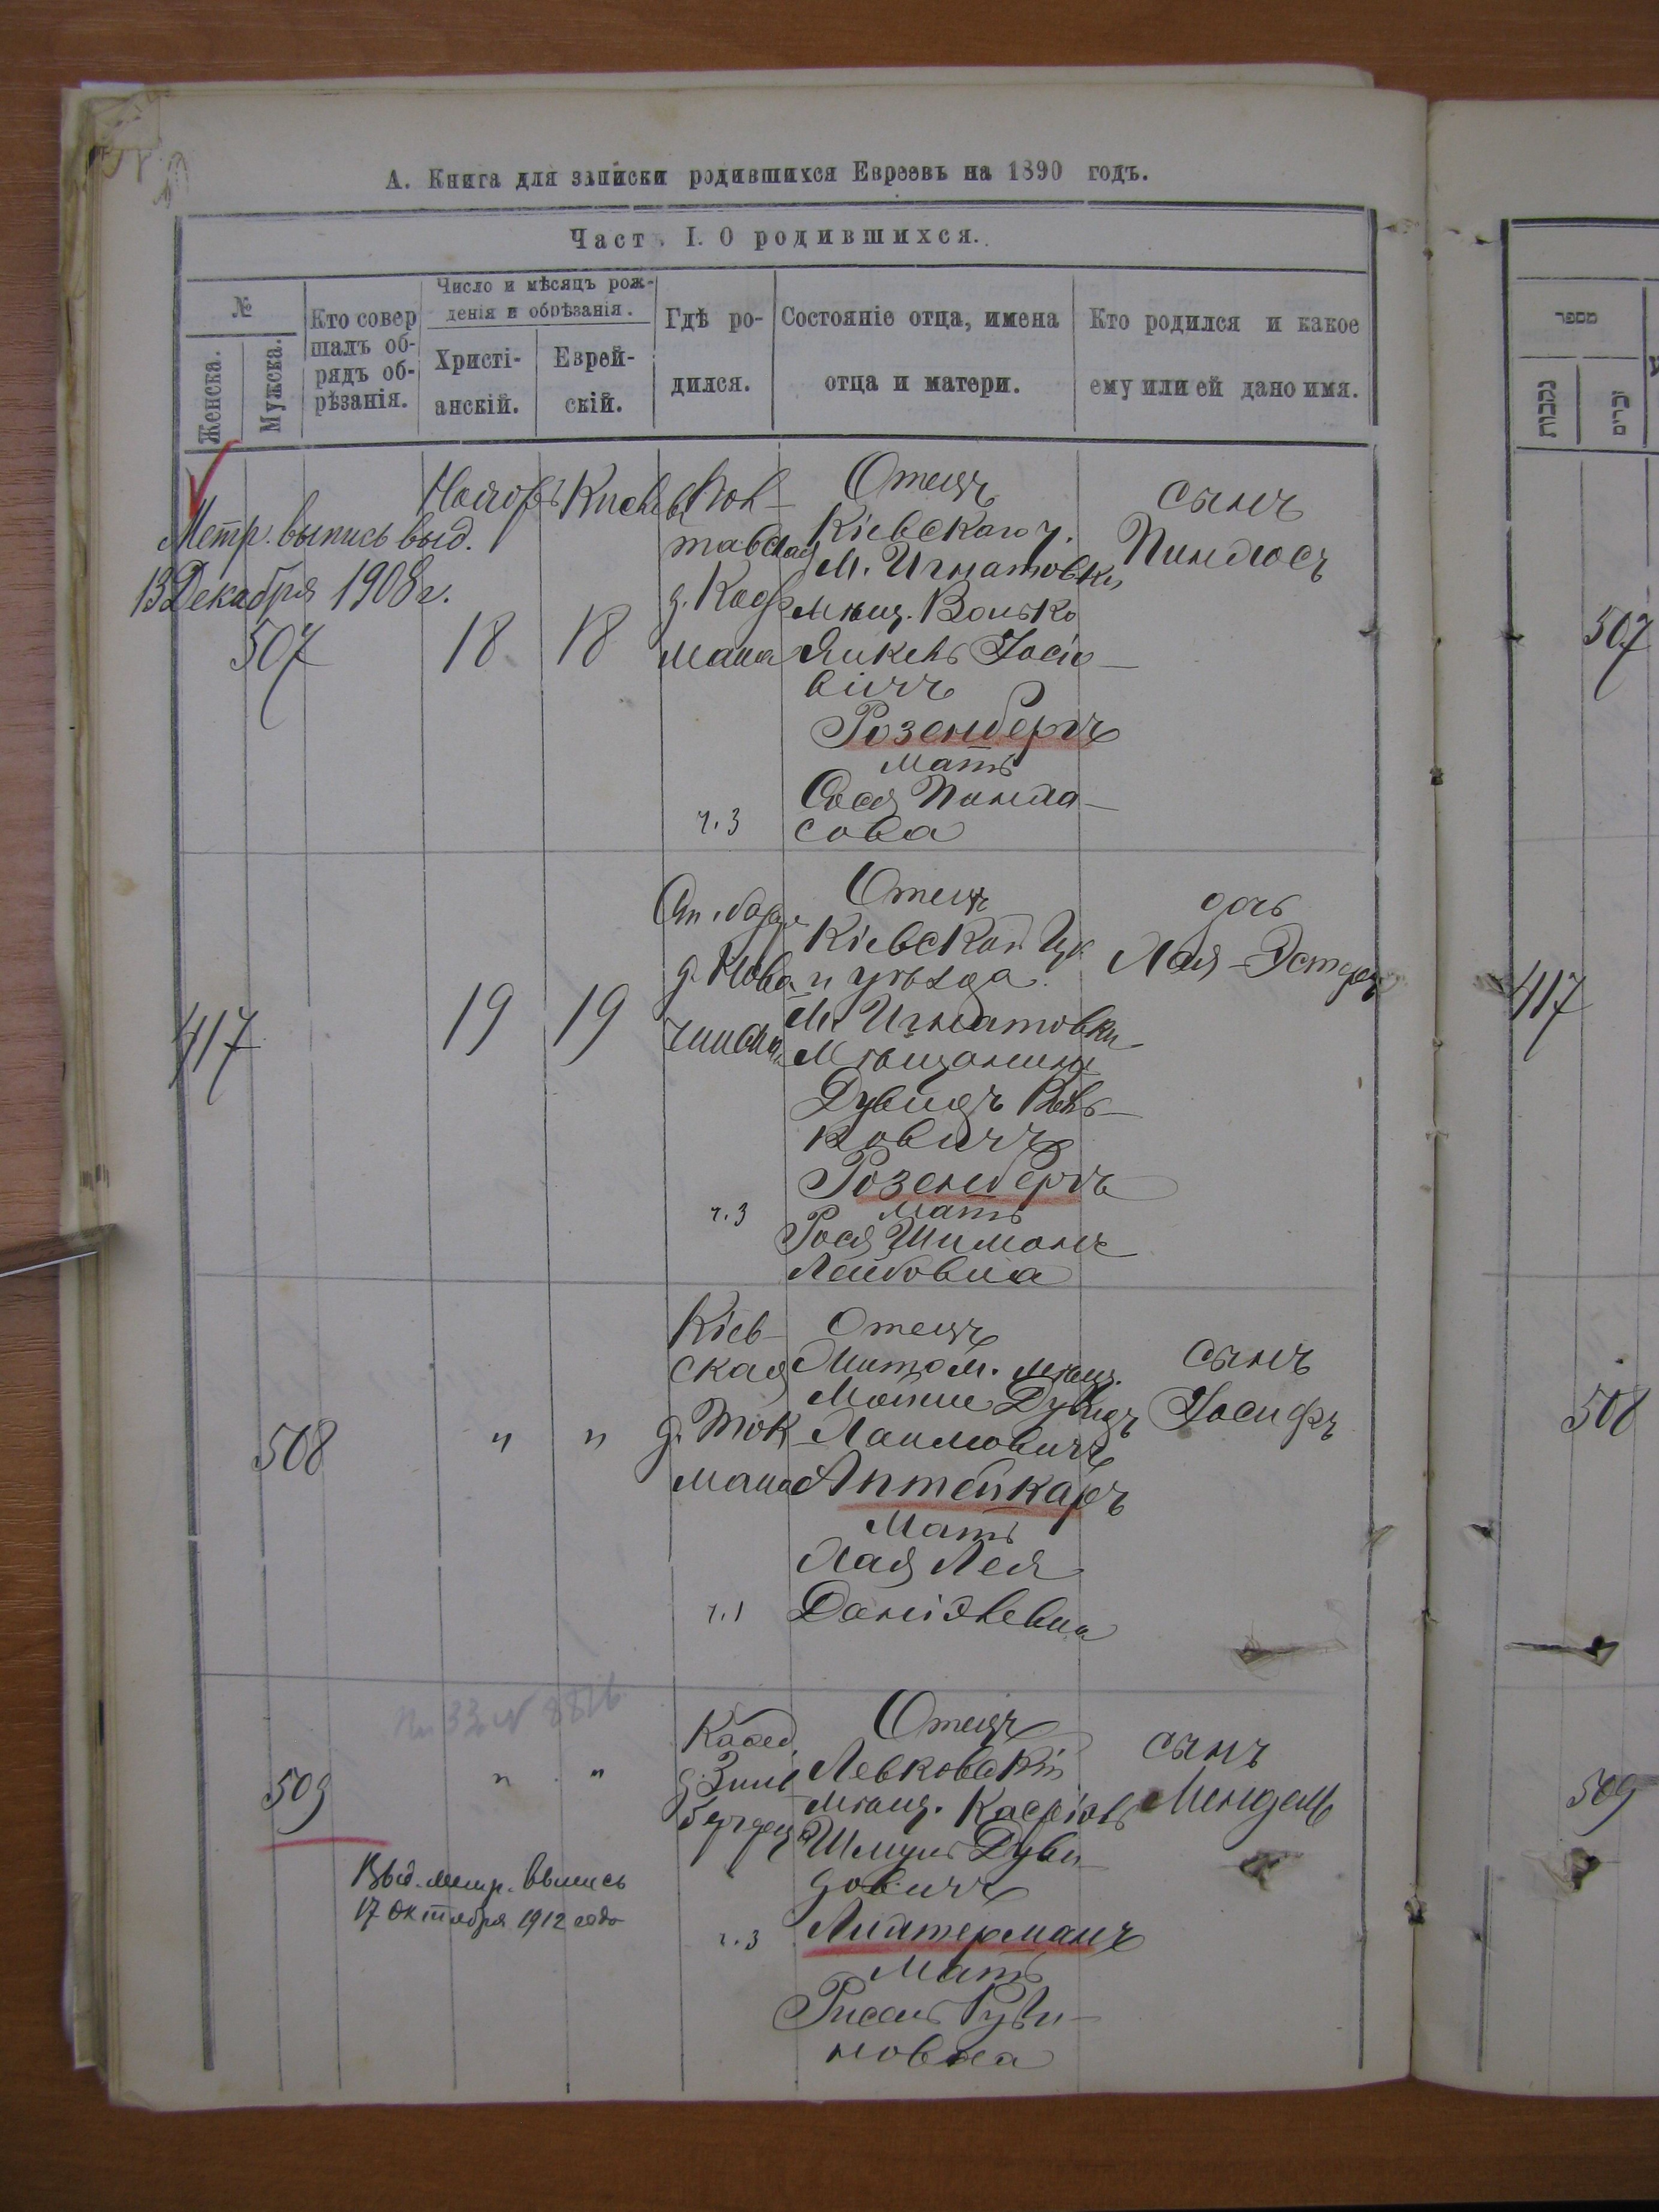 А. Книга для записки родившихся Евреевъ на 1890 годъ.
Часть I. О родившихся.
№
Женска.
Мужска.
Кто совер
шалъ об-
рядъ об-
рѣзанія.
Число и мѣсяцъ рож-
денія и обрѣзанія.
Христі-
анскій.
Еврей-
скій.
Гдѣ ро-
дился.
Состояніе отца, имена
отца и матери.
Кто родился и какое
ему или ей дано имя.
Метр. выпись выд.
13 Декабря 1908 г.
507
Ноябрь
18
Кислевъ
18
Пол-
тавская
мана
ч. 3
Отецъ
Кіевскаго у.
М. Игнатовки
мѣщ. Волько
Янкель Іосіо-
вичъ
Розенбергъ
Мать
Сося Пинха-
сова
сынъ
Пинхосъ
417
19
19
д. Нова
ч. 3
Отецъ
Кіевской Гу
и уѣзда
М. Игнатовки
Мѣщанинъ
Дувидъ Воль-
ковичъ
Розенбергъ
Мать
Рося Шимонъ
Лейбовна
дочь
Хая-Эстеръ
508
"
"
Кіев-
ская
д. Ток
мана
ч. 1
Отецъ
Житом. мѣщ.
Мойше Дувидъ
Хаимовичъ
Аптейкаръ
Мать
Хая Лея
Даніэлевна
сынъ
Іосифъ
509
"
"
ч. 3
Отецъ
Левковскій
мѣщ. Касріэль
Шмуль Дуви-
довичъ
Лихтерманъ
Мать
Рисель Руви-
новна
сынъ
Мендель
Выд. метр. выпись
17 Октября 1912 года
מספר
נקבות
זכרים
507
417
508
509